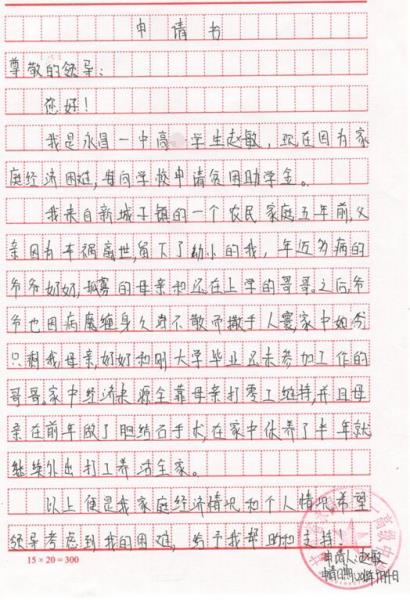 申请书
尊敬的领导:
您好!
我是永昌一中高 学生赵敏,现在因为家
庭经济困难,每向学校申请贫困助学金。
我来自新城子镇的一个农民家庭五年前,父
亲因为车祸离世,留下了幼小的我,年迈多病的
爷爷奶奶,孤寡的母亲和还在上学的哥哥。之后,爷
爷也因病魔缠身久身不散而撒手人寰,家中如今
只剩我母亲,奶奶和刚大学毕业还未参加工作的
哥哥,家中经济来源全靠母亲打零工维持,并且母
亲在前年做了胆结石手术,在家中休养了半年就
继续外出打工养活全家。
以上便是我家庭经济情况和个人情况,希望
领导考虑到我的困难,给予我帮助和支持!
申请人:赵敏
申请日期:
15×20=300